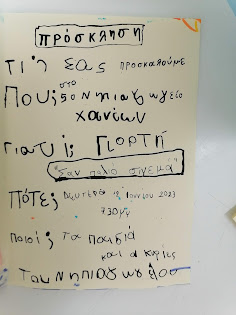 πρόσκληση
Τι; Σας προσκαλούμε
Που; στο 50 Νηπιαγωγείο
χανίων
Γιατί; Γιορτή
"Σαν παλιό σινεμά"
Πότε; Δευτέρα 12 Ιουνίου 2023
7:30μμ
Ποιοί; Τα παιδιά
και οι κυρίες
Του Νηπιαγωγείου